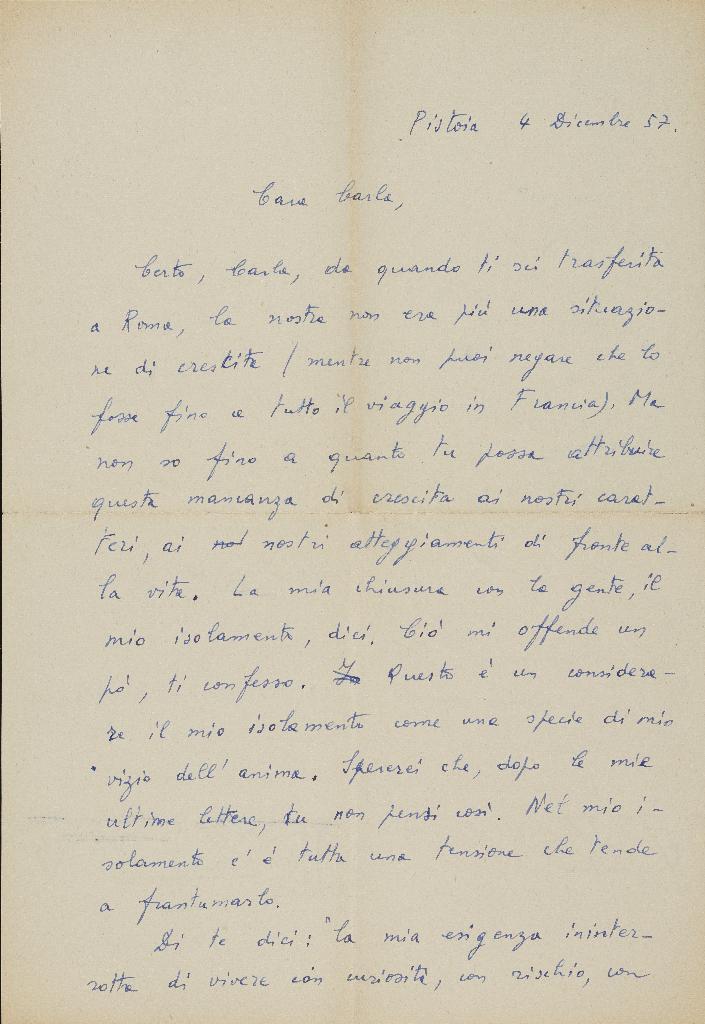 Pistoia 4 Dicembre 57.
Cara Carla,
Certo, Carla, da quando ti sei trasferita
a Roma, la nostra non era più una situazio-
ne di crescita (mentre non puoi negare che lo
fosse fino a tutto il viaggio in Francia). Ma
non so fino a quanto tu possa attribuire
questa mancanza di crescita ai nostri carat-
teri, ai nostri atteggiamenti di fronte al-
la vita. La mia chiusura con la gente, il
mio isolamento, dici. Ciò mi offende un
pò, ti confesso. Questo è un considera-
re il mio isolamento come una specie di mio
vizio dell'anima. Spererei che, dopo le mie
ultime lettere, tu non pensi così. Nel mio i-
solamento c'è tutta una tensione che tende
a frantumarlo.
Di te dici: "la mia esigenza ininter-
rotta di vivere con curiosità, con rischio, con